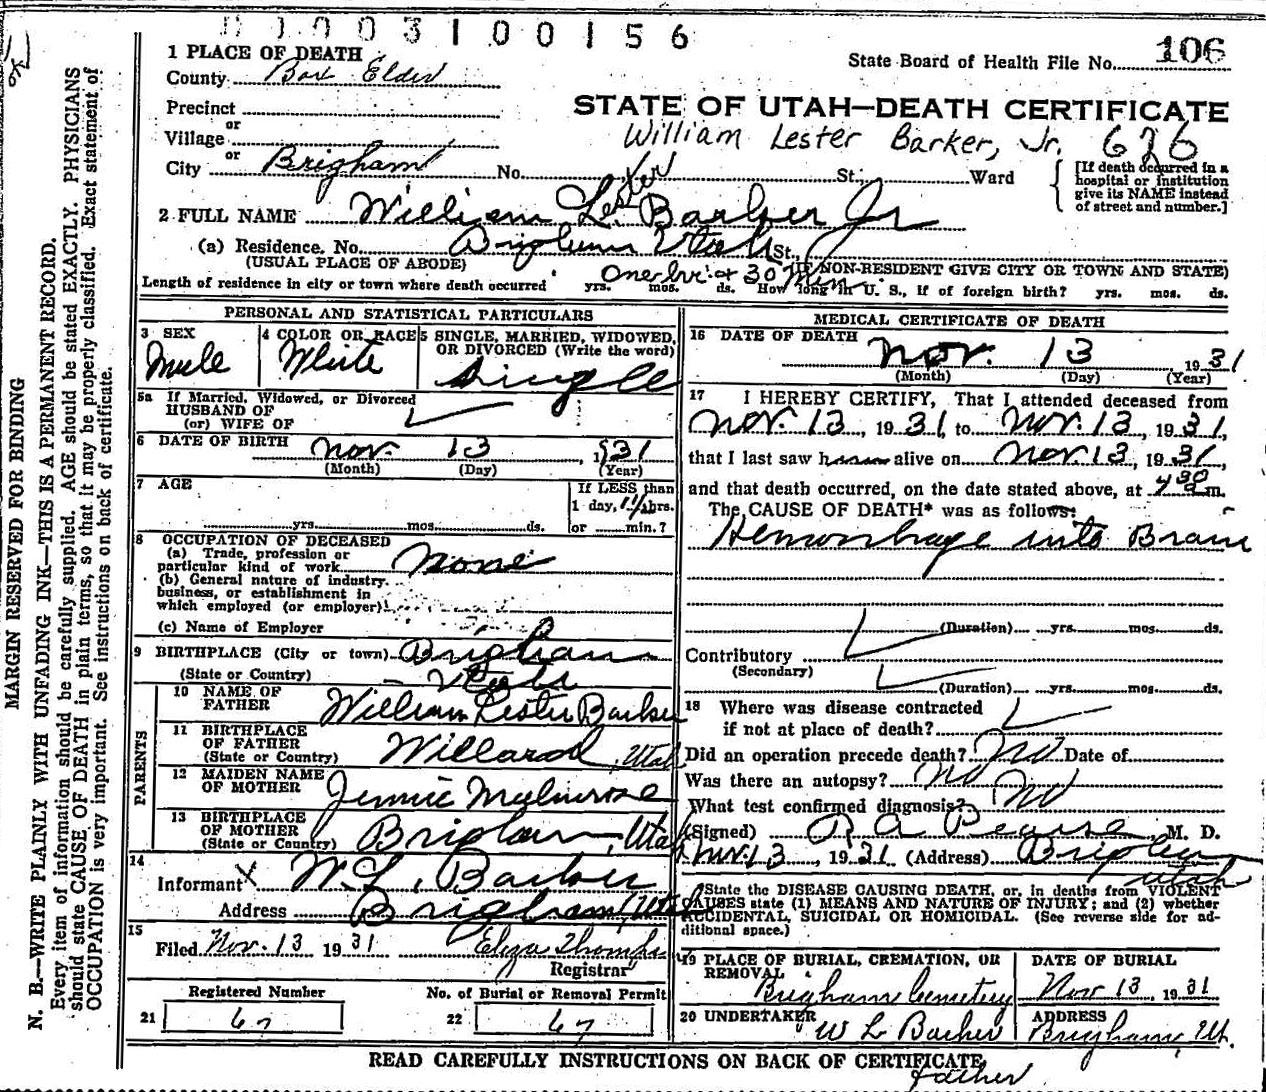 0003100156
1 PLACE OF DEATH
State Board of Health File No. 106
County Box Elder
STATE OF UTAH—DEATH CERTIFICATE
Precinct
William Lester Barker, Jr. 626
or
Village
or
City Brigham No. St., Ward
[If death occurred in a hospital or institution give its NAME instead of street and number.]
Lester
2 FULL NAME William L. Barker Jr
(a) Residence. No. Brigham Utah St.,
(USUAL PLACE OF ABODE) (IF NON-RESIDENT GIVE CITY OR TOWN AND STATE)
One hr & 30 Min
Length of residence in city or town where death occurred yrs. mos. ds. How long in U. S., if of foreign birth? yrs. mos. ds.
PERSONAL AND STATISTICAL PARTICULARS
3 SEX 4 COLOR OR RACE 5 SINGLE, MARRIED, WIDOWED, OR DIVORCED (Write the word)
Male White Single
5a If Married, Widowed, or Divorced
HUSBAND OF
(or) WIFE OF
6 DATE OF BIRTH Nov. 13, 1931
(Month) (Day) (Year)
7 AGE
If LESS than
1 day, 1½ hrs.
yrs. mos. ds. or min.?
8 OCCUPATION OF DECEASED
(a) Trade, profession or
particular kind of work None
(b) General nature of industry.
business, or establishment in
which employed (or employer)
(c) Name of Employer
9 BIRTHPLACE (City or town) Brigham
(State or Country) Utah
PARENTS
10 NAME OF
FATHER William Lester Barker
11 BIRTHPLACE
OF FATHER
(State or Country) Willard, Utah
12 MAIDEN NAME
OF MOTHER Jennie
13 BIRTHPLACE
OF MOTHER
(State or Country) Brigham, Utah
14
Informant X W. L. Barker
Address Brigham, Utah
15
Filed Nov. 13 1931 Eliza Thompson
Registrar
Registered Number No. of Burial or Removal Permit
21 67 22 67
MEDICAL CERTIFICATE OF DEATH
16 DATE OF DEATH
Nov. 13 1931
(Month) (Day) (Year)
17 I HEREBY CERTIFY, That I attended deceased from
Nov. 13, 1931, to Nov. 13, 1931,
that I last saw alive on Nov. 13, 1931,
and that death occurred, on the date stated above, at 4 30 a.m.
The CAUSE OF DEATH* was as follows:
Hemorrhage into Brain
(Duration) yrs. mos. ds.
Contributory
(Secondary)
(Duration) yrs. mos. ds.
18 Where was disease contracted
if not at place of death?
Did an operation precede death? No Date of
Was there an autopsy? No
What test confirmed diagnosis? No
(Signed) R A Pearse M. D.
Nov. 13, 1931 (Address) Brigham
Utah
*State the DISEASE CAUSING DEATH, or, in deaths from VIOLENT
CAUSES state (1) MEANS AND NATURE OF INJURY; and (2) whether
ACCIDENTAL, SUICIDAL OR HOMICIDAL. (See reverse side for ad-
ditional space.)
19 PLACE OF BURIAL, CREMATION, OR REMOVAL DATE OF BURIAL
Brigham Cemetery Nov 13 1931
20 UNDERTAKER ADDRESS
W L Barker Brigham, Ut.
READ CAREFULLY INSTRUCTIONS ON BACK OF CERTIFICATE
Father
MARGIN RESERVED FOR BINDING
N. B.—WRITE PLAINLY WITH UNFADING INK—THIS IS A PERMANENT RECORD.
Every item of information should be carefully supplied. AGE should be stated EXACTLY. PHYSICIANS
should state CAUSE OF DEATH in plain terms, so that it may be properly classified. Exact statement of
OCCUPATION is very important. See instructions on back of certificate.